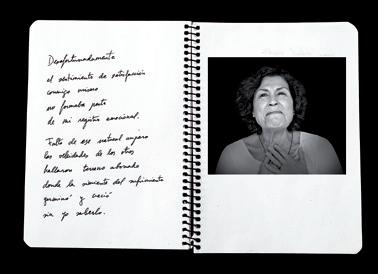 Desafortunadamente
el sentimiento de satisfacción
conmigo mismo
no formaba parte
de mi registro emocional.
Falto de ese natural amparo
las olbidades de los otros
hallaron terreno abonado
donde la simiente del sufrimiento
germinó y creció
sin yo saberlo.